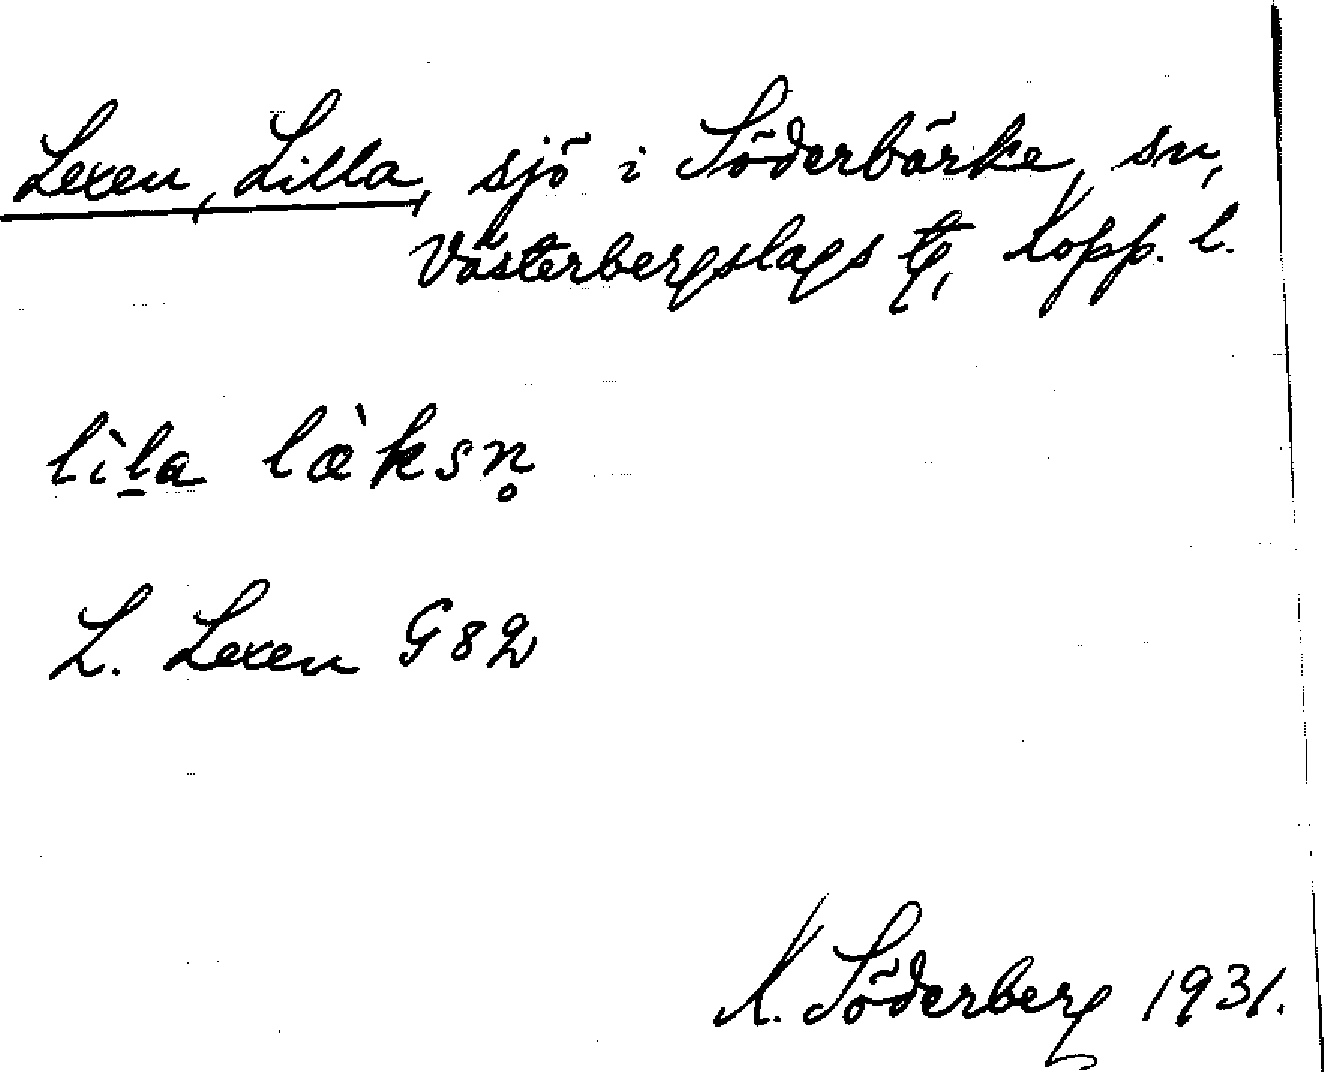 Lexen, Lilla, sjö i Söderbärke, sn,
Västerbergslags tg, Kopp. l.
lìl̠a læ̀ksn̥
L. Lexen G82
K. Söderberg 1931.